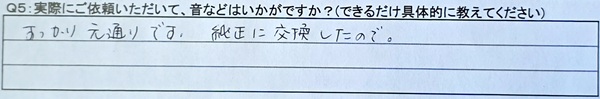 Q5：実際にご依頼いただいて、音などはいかがですか？(できるだけ具体的に教えてください)
すっかり元通りです。 純正に交換したので。